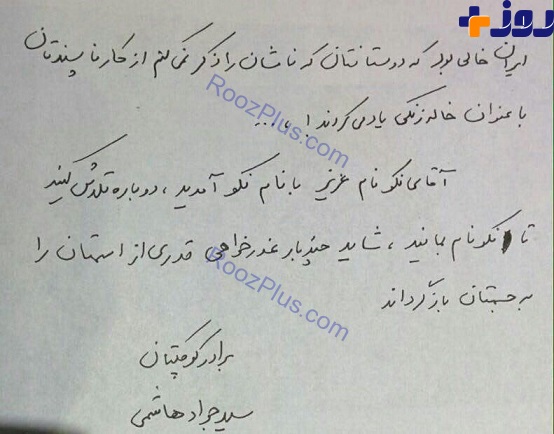 روز
ایران خالی بود که دوستانتان که نامشان را ذکر نمی کنم از کار ناپسندتان
با عنوان خاله زنکی یاد می کردند! ...
RoozPlus.com
آقای نکونام عزیز با نام نکو آمدید، دوباره تلاش کنید
تا نکونام بمانید، شاید چندبار عذرخواهی قدری از استهان را
RoozPlus.com
به جستان بازگرداند
برادر کوچکتان
سید جواد هاشمی